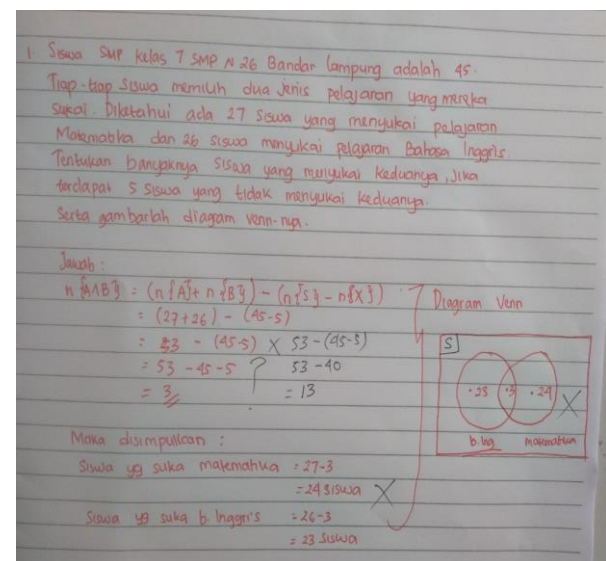 1. Siswa SMP kelas 7 SMP N 26 Bandar lampung adalah 45.
Tiap-tiap siswa memilih dua jenis pelajaran yang mereka
sukai. Diketahui ada 27 siswa yang menyukai pelajaran
Matematika dan 26 siswa menyukai pelajaran Bahasa Inggris.
Tentukan banyaknya siswa yang menyukai keduanya, Jika
terdapat 5 siswa yang tidak menyukai keduanya.
Serta gambarlah diagram venn-nya.
Jawab :
n {A∩B} = (n {A} + n {B}) - (n {S} - n {X})
= (27+26) - (45-5)
= 53 - (45-5) X 53-(45-5)
= 53 - 45 - 5 ? 53-40
= 3 = 13
Maka disimpulkan :
Siswa yg suka matematika = 27-3
= 24 siswa X
Siswa yg suka b. Inggris = 26-3
= 23 siswa
Diagram Venn
S
• 23 • 3 • 24 X
b. Ing matematika